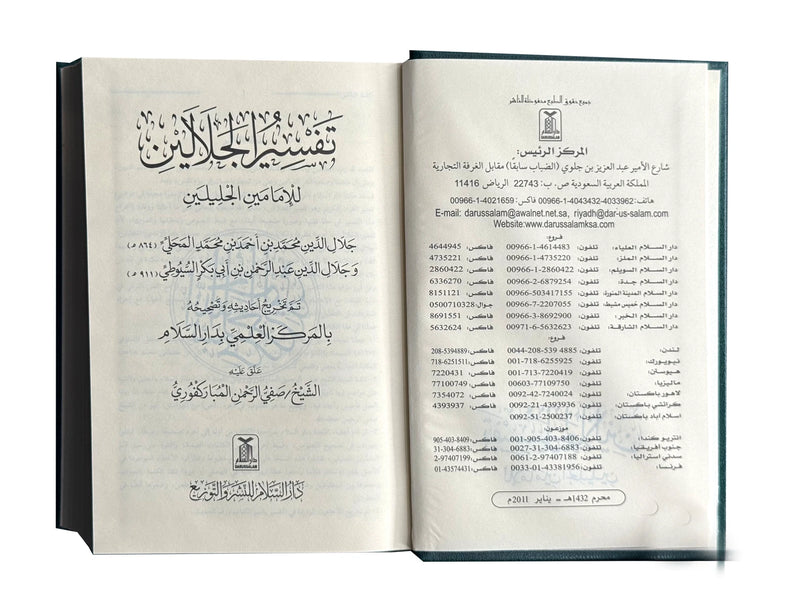 جميع حقوق الطبع محفوظة للناشر
DARUSSALAM
المركز الرئيس:
شارع الأمير عبد العزيز بن جلوي (الضباب سابقًا) مقابل الغرفة التجارية
المملكة العربية السعودية ص. ب: 22743 الرياض 11416
هاتف: 4033962-4043432-1-00966 فاكس: 4021659-1-00966
E-mail: darussalam@awalnet.net.sa, riyadh@dar-us-salam.com
Website:www.darussalamksa.com
فروع:
دار السلام العليا: تلفون: 00966-1-4614483 فاكس: 4644945
دار السلام الملز: تلفون: 00966-1-4735220 فاكس: 4735221
دار السلام السويلم: تلفون: 00966-1-2860422 فاكس: 2860422
دار السلام جدة: تلفون: 00966-2-6879254 فاكس: 6336270
دار السلام المدينة المنورة: تلفون: 00966-503417155 فاكس: 8151121
دار السلام خميس مشيط: تلفون: 00966-7-2207055 جوال: 0500710328
دار السلام الخبر: تلفون: 00966-3-8692900 فاكس: 8691551
دار السلام الشارقة: تلفون: 00971-6-5632623 فاكس: 5632624
فروع:
لندن: تلفون: 0044-208-539 4885 فاكس: 208-5394889
نيويورك: تلفون: 001-718-6255925 فاكس: 718-6251511
هيوستن: تلفون: 001-713-7220419 فاكس: 7220431
ماليزيا: تلفون: 00603-77109750 فاكس: 77100749
لاهور باكستان: تلفون: 0092-42-7240024 فاكس: 7354072
كراتشي باكستان: تلفون: 0092-21-4393936 فاكس: 4393937
اسلام آباد باكستان: تلفون: 0092-51-2500237
موزعون:
انتريو كندا: تلفون: 001-905-403-8406 فاكس: 905-403-8409
جنوب أفريقيا: تلفون: 0027-31-304-6883 فاكس: 31-304-6883
سدني استراليا: تلفون: 0061-2-97407188 فاكس: 2-97407199
فرنسا: تلفون: 0033-01-43381956 فاكس: 01-43574431
محرم 1432هـ = يناير 2011م
تَفْسِيرُ الجَلَالَيْنِ
لِلْإِمَامَيْنِ الْجَلِيلَيْنِ
جَلَال الدِّين مُحَمَّد بن أَحْمَد بن مُحَمَّد المَحَلِّيّ (٨٦٤ هـ)
وَجَلَال الدِّين عَبْد الرَّحْمٰن بن أَبي بَكْر السُّيُوطِيّ (٩١١ هـ)
تَمَّ تَخْرِيجُ أَحَادِيثِهِ وَتَصْحِيحُهُ
بِالمَرْكَزِ العِلْمِيِّ بِدَارِ السَّلَام
عَلَّقَ عَلَيْهِ
الشَّيْخ/ صَفِيُّ الرَّحْمٰن المُبَارَكْفُورِيُّ
DARUSSALAM
دَارُ السَّلَام لِلنَّشْرِ وَالتَّوْزِيْع